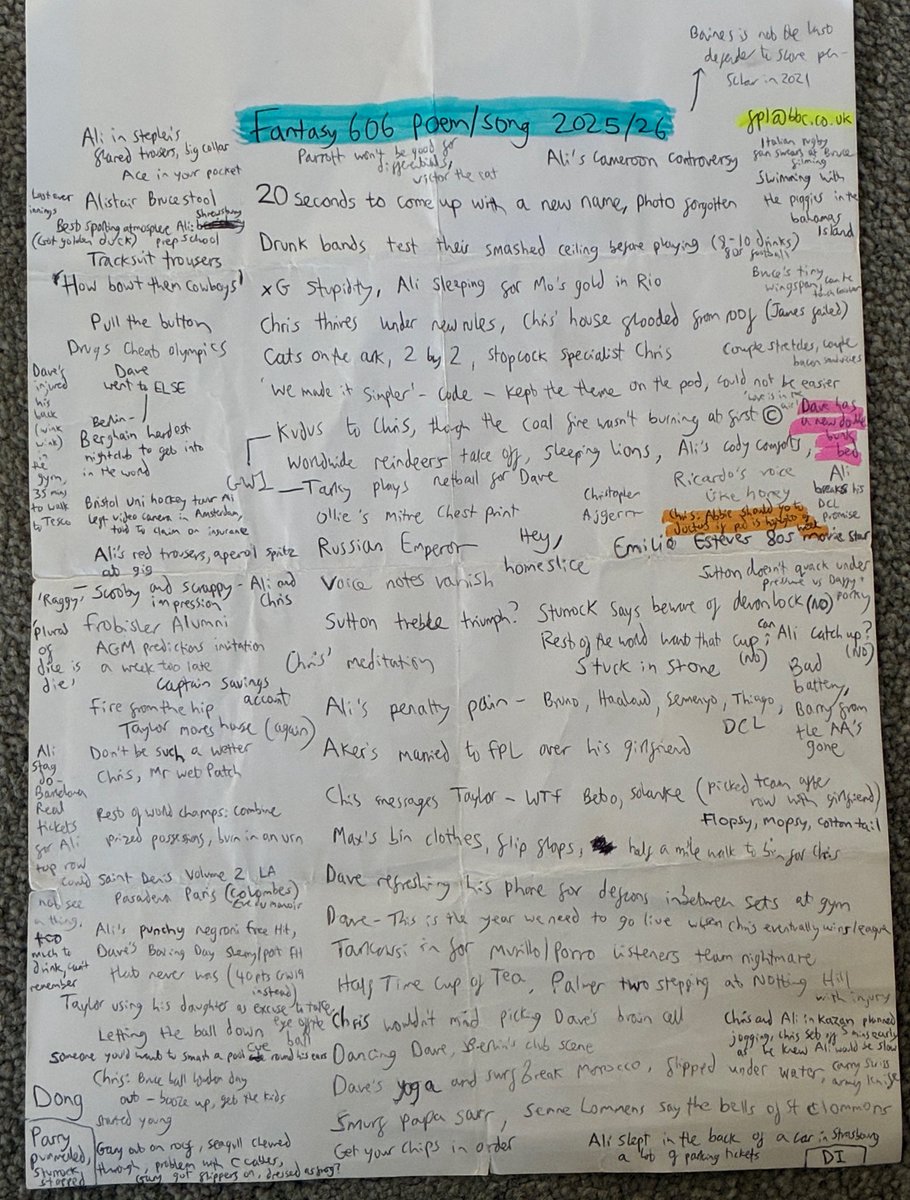 Baines is not the last
defender to score pen -
in 2021
Fantasy 606 poem/song 2025/26
fpl@bbc.co.uk
Ali in stephen's
flared trousers, big collar
Ace in your pocket
Parrott won't be good for
differentials,
victor the rat
Ali's Cameroon controversy
Italian rugby
fan swears at Bruce
filming
Swimming with
the piggies in the
bahamas
Island
Last ever
innings
Alistair Brucestool
Best sporting atmosphere Ali: Shrewsbury
(Got golden duck) prep school
Tracksuit trousers
20 seconds to come up with a new name, photo forgotten
Drunk bands test their smashed ceiling before playing (8-10 drinks)
for football
'How bowt them Cowboys'
xG Stupidity, Ali sleeping for Mo's gold in Rio
Bruce's tiny
wingspan,
Pull the button
Chris thrives under new rules, Chris' house flooded from roof (James failed)
Drugs Cheat Olympics
Cats on the ark, 2 by 2, stopcock specialist Chris
Couple stretches, couple
bacon sandwiches
Dave
went to ELSE
'We made it simpler' - code - kept the theme on the pod, could not be easier
'love is in the
air'
Dave's
injured
his
back
(wink
wink)
in
the
gym,
35 mins
to walk
to Tesco
Berlin -
Berghain hardest
nightclub to get into
in the world
Kudus to Chris, though the coal fire wasn't burning at first ©
Dave has
a new
bunk
bed
GW1
Worldwide reindeers take off, sleeping lions, Ali's comforts,
Tarky plays netball for Dave
Ricardo's voice
like honey
Ali
breaks his
DCL
promise
Bristol Uni hockey tour Ali
left video camera in Amsterdam,
told to claim on insurance
Ollie's mitre Chest print
Christopher
Ajgerrr
Chris: Abbie should go to
Ali's red trousers, aperol spritz
at gig
Russian Emperor
Hey,
homeslice
Emilio Estevez 80s movie star
'Raggy'-
Scooby and scrappy - Ali and
impression Chris
Voice notes vanish
Sutton doesn't quack under
pressure vs Daffy +
Porky
'plural
of
dice is
die'
frobisher Alumni
Sutton treble triumph? Sturrock says beware of devon lock (NO)
AGM predictions invitation
a week too late
Rest of the world want that cup, can Ali catch up?
(NO) (NO)
Chris' meditation
Stuck in stone
Captain Savings
account
Bad
battery,
Barry from
the AA's
gone
Fire from the hip
Ali's penalty pain - Bruno, Haaland, Semenyo, Thiago,
DCL
Taylor moves house (again)
Don't be such a wetter
Aker's married to FPL over his girlfriend
Ali
stag
do -
Barcelona
Real
tickets
for Ali
top row
could
not see
a thing,
too
much to
drink, can't
remember
Chris, Mr Web Patch
Chris messages Taylor - WTF Bebo, solanke (picked team after
row with girlfriend)
Rest of world champs: combine
prized possessions, burn in an urn
Flopsy, mopsy, cotton tail
Max's bin clothes, flip flops, half a mile walk to bin for Chris
Saint Denis Volume 2 LA
Pasadena Paris (Colombes)
Yves du manoir
Dave refreshing his phone for defcons inbetween sets at gym
Ali's punchy negroni Free Hit,
Dave - This is the year we need to go live when Chris eventually wins league
Dave's Boxing Day FH
that never was (40pts GW19
instead)
Tarkowski in for Murillo/Porro listeners team nightmare
Half Time Cup of Tea, Palmer two stepping at Notting Hill
with injury
Taylor using his daughter as excuse to take
eye off the
ball
Letting the ball down
Chris wouldn't mind picking Dave's brain cell
Chris and Ali in Kazan planned
jogging, Chris set off 5 mins early
as he knew Ali would be slow
Someone you'd want to smash a pool cue round his ears
Dancing Dave, Berlin's club scene
Chris: Bruce ball London day
out - booze up, get the kids
started young
Dave's yoga and surf break Morocco, slipped under water, carry swiss
army knife
Dong
Smurf papa sarr, Senne Lammens say the bells of St Clemmons
Parry
pummeled,
Sturrock
stopped
Gary out on roof, seagull chewed
through, problem with C cables,
Get your chips in order
Ali slept in the back of a car in Strasbourg
a lot of parking tickets
DI